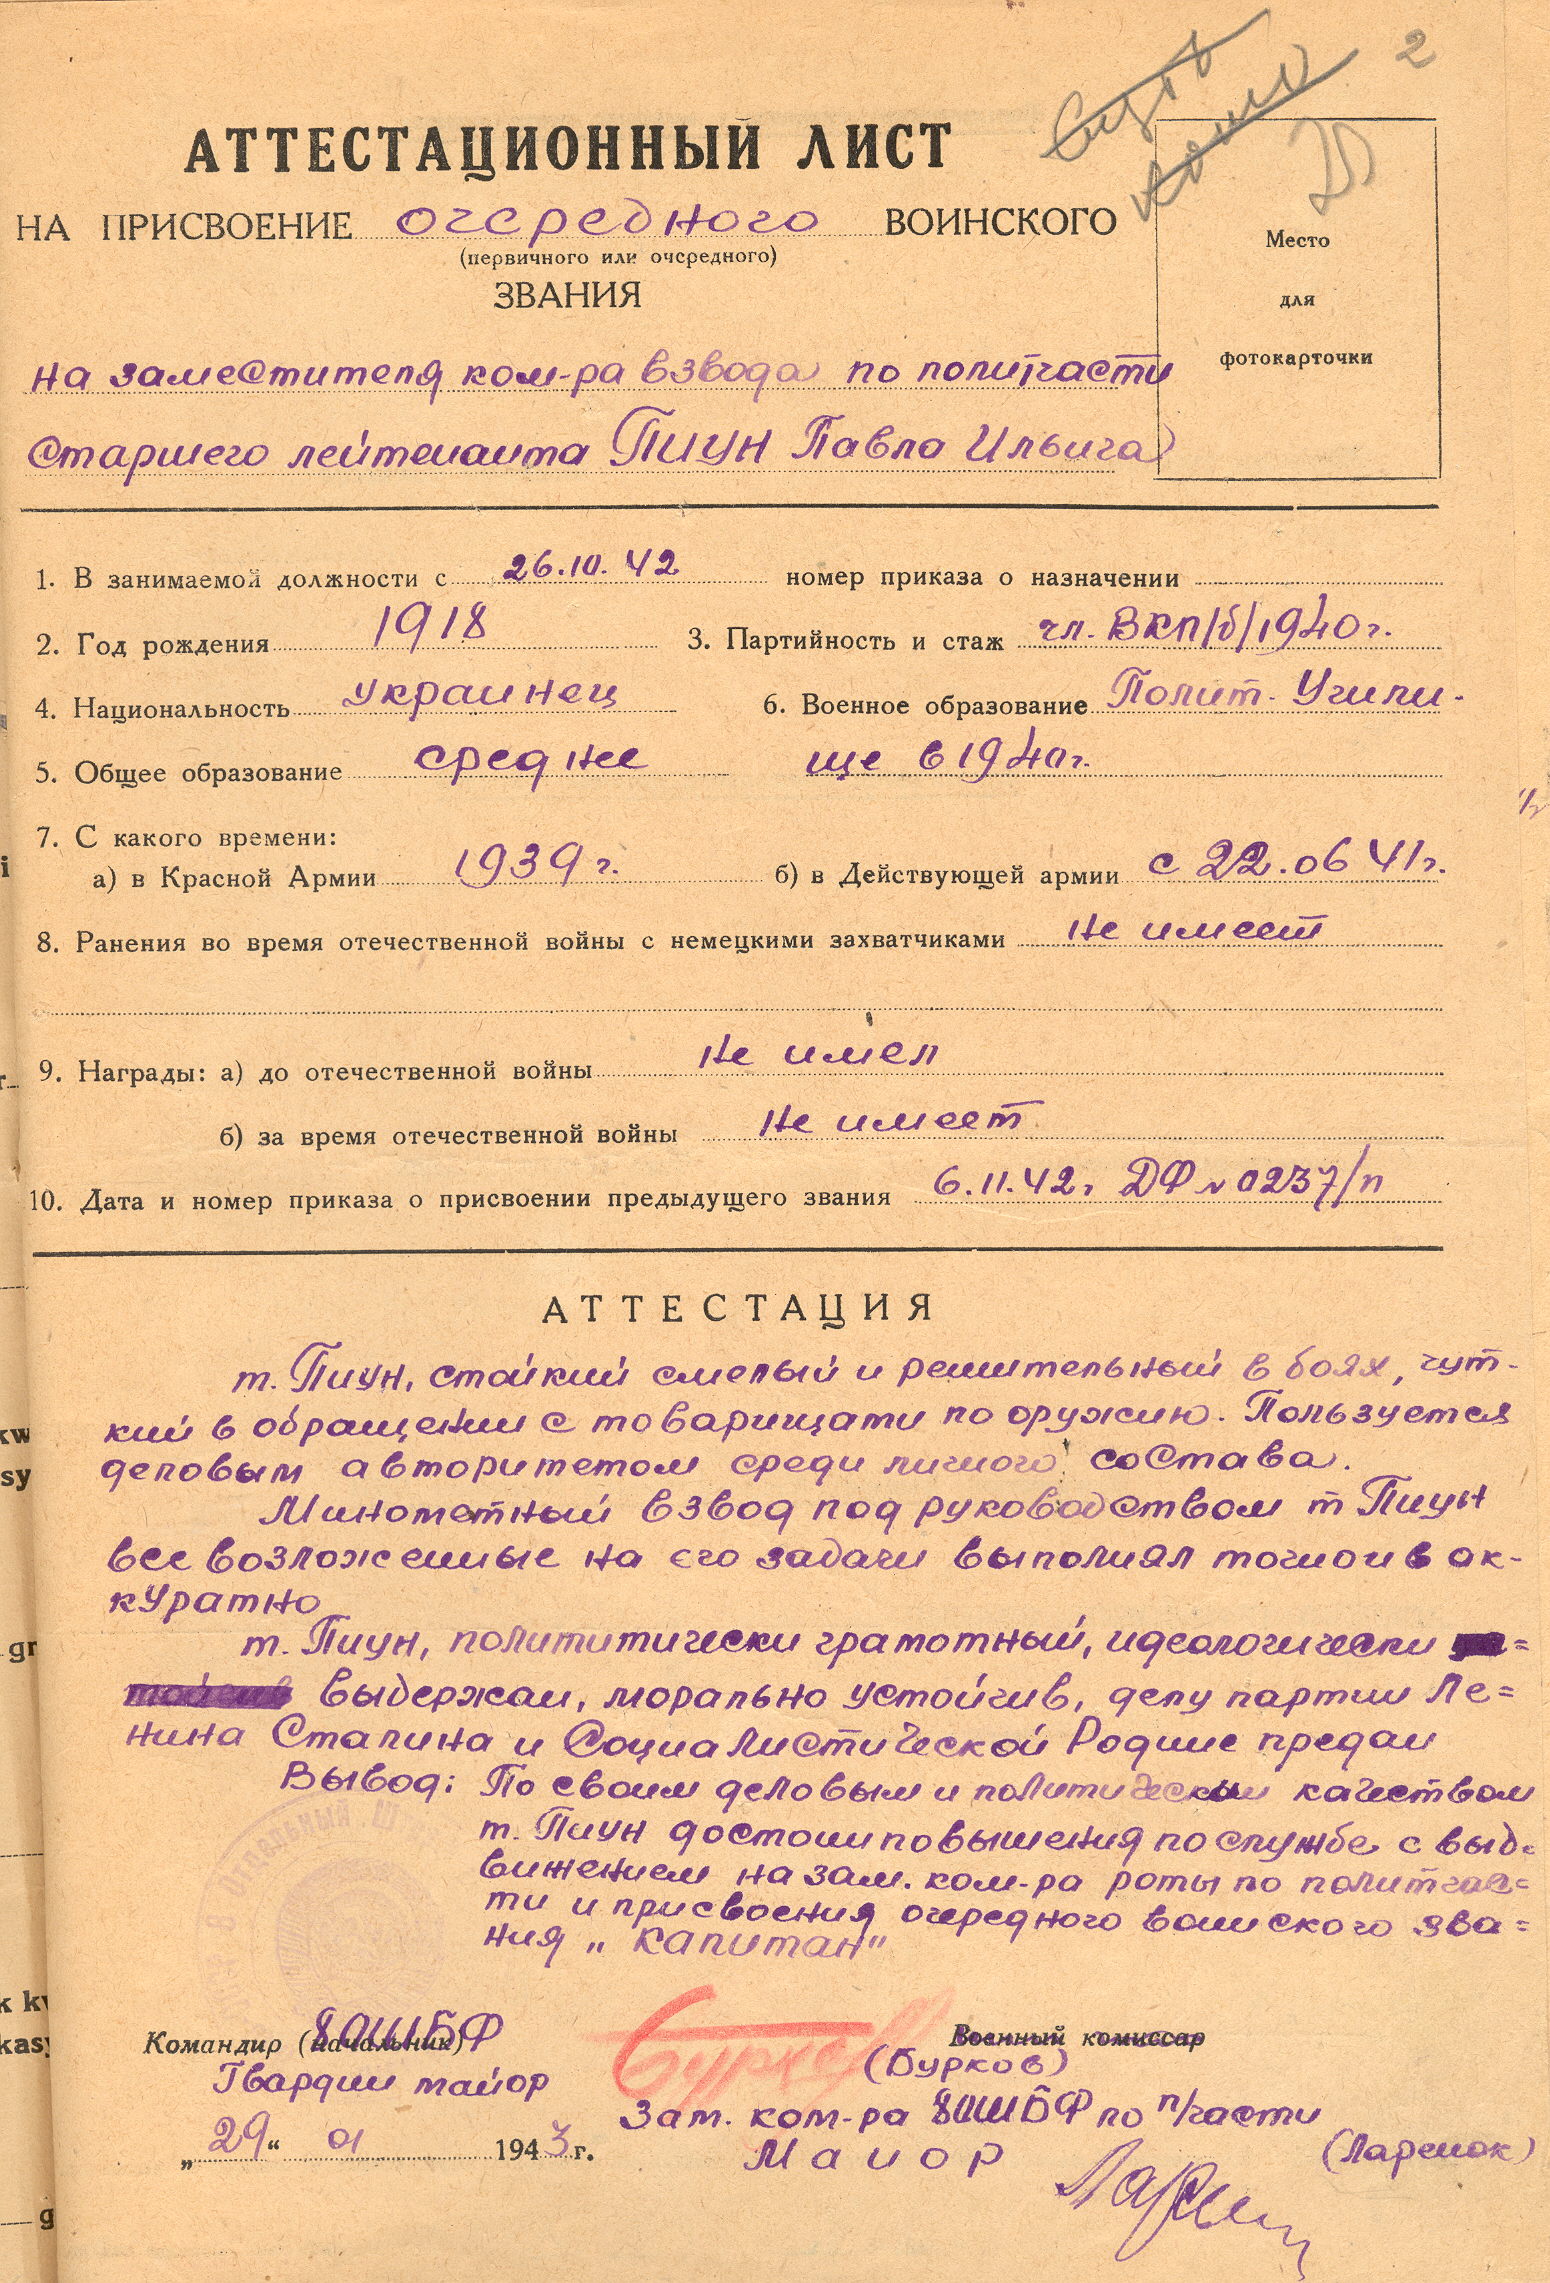 2
АТТЕСТАЦИОННЫЙ ЛИСТ
НА ПРИСВОЕНИЕ очередного ВОИНСКОГО
(первичного или очередного)
ЗВАНИЯ
Место
для
фотокарточки
на заместителя ком-ра взвода по политчасти
Старшего лейтенанта Пиун Павла Ильича
1. В занимаемой должности с 26.10.42 номер приказа о назначении
2. Год рождения 1918 3. Партийность и стаж чл. ВКП/б/1940г.
4. Национальность украинец 6. Военное образование Полит. Учили-
5. Общее образование среднее ще в 1940г.
7. С какого времени:
а) в Красной Армии 1939 г. б) в Действующей армии с 22.06 41г.
8. Ранения во время отечественной войны с немецкими захватчиками не имеет
9. Награды: а) до отечественной войны не имел
б) за время отечественной войны не имеет
10. Дата и номер приказа о присвоении предыдущего звания 6.11.42г ДФ № 0237/п
АТТЕСТАЦИЯ
т. Пиун, стойкий смелый и решительный в боях, чут-
кий в обращении с товарищами по оружию. Пользуется
деловым авторитетом среди личного состава.
Минометный взвод под руководством т Пиун
все возложенные на его задачи выполнял точно и в ак-
куратно
т. Пиун, полититически грамотный, идеологически
выдержан, морально устойчив, делу партии Ле=
нина Сталина и Социалистической Родине предан
Вывод: По своим деловым и политическим качеством
т. Пиун достоин повышения по службе с выд-
вижением на зам. ком-ра роты по политчас=
ти и присвоения очередного воинского зва=
ния „капитан"
Командир (начальник) 8ОШБФ
Военный комиссар
Гвардии майор
(Бурков)
Зам. ком-ра 8ОШБФ по п/части
„29" 01 1943г.
Маиор
(Ларенок)